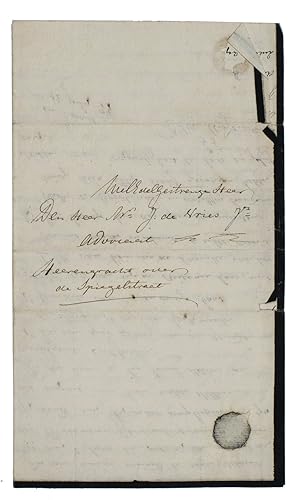 WelEdelGestrenge Heer
Den Heer Mr. J. de Vries Jz.
Advocaat
Heerengracht over
de Spiegelstraat